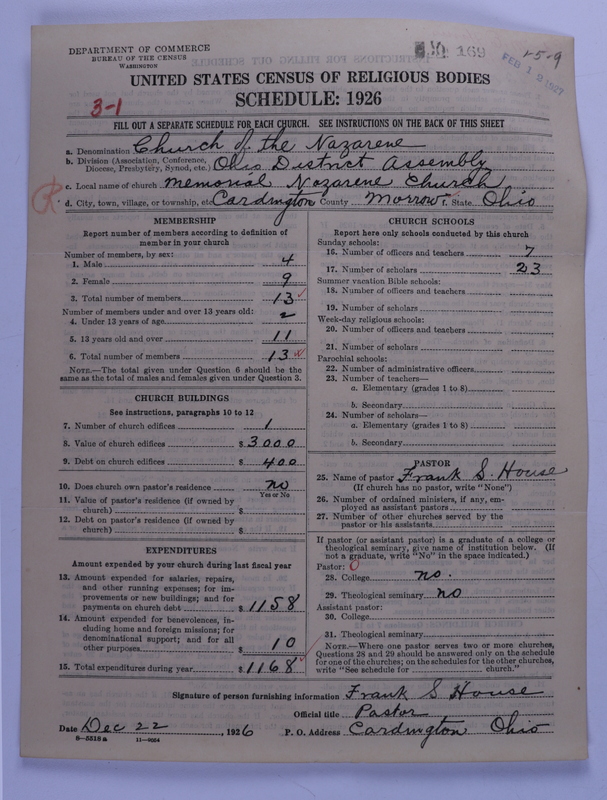 DEPARTMENT OF COMMERCE
BUREAU OF THE CENSUS
WASHINGTON
169
FEB 12 1927
1-5-9
UNITED STATES CENSUS OF RELIGIOUS BODIES
SCHEDULE: 1926
3-1
FILL OUT A SEPARATE SCHEDULE FOR EACH CHURCH. SEE INSTRUCTIONS ON THE BACK OF THIS SHEET
a. Denomination Church of the Nazarene
b. Division (Association, Conference, Diocese, Presbytery, Synod, etc.) Ohio District Assembly
c. Local name of church Memorial Nazarene Church
R d. City, town, village, or township, etc. Cardington County Morrow f. State Ohio
MEMBERSHIP
Report number of members according to definition of
member in your church
Number of members, by sex:
1. Male 4
2. Female 9
3. Total number of members 13
Number of members under and over 13 years old:
4. Under 13 years of age 2
5. 13 years old and over 11
6. Total number of members 13
NOTE.—The total given under Question 6 should be
same as the total of males and females given under Question 3.
CHURCH BUILDINGS
See instructions, paragraphs 10 to 12
7. Number of church edifices 1
8. Value of church edifices $ 3000
9. Debt on church edifices $ 400
10. Does church own pastor's residence no
Yes or No
11. Value of pastor's residence (if owned by
church) $
12. Debt on pastor's residence (if owned by
church) $
EXPENDITURES
Amount expended by your church during last fiscal year
13. Amount expended for salaries, repairs,
and other running expenses; for im-
provements or new buildings; and for
payments on church debt $ 1158
14. Amount expended for benevolences, in-
cluding home and foreign missions; for
denominational support; and for all
other purposes $ 10
15. Total expenditures during year $ 1168
CHURCH SCHOOLS
Report here only schools conducted by this church
Sunday schools:
16. Number of officers and teachers 7
17. Number of scholars 23
Summer vacation Bible schools:
18. Number of officers and teachers
19. Number of scholars
Week-day religious schools:
20. Number of officers and teachers
21. Number of scholars
Parochial schools:
22. Number of administrative officers
23. Number of teachers—
a. Elementary (grades 1 to 8)
b. Secondary
24. Number of scholars—
a. Elementary (grades 1 to 8)
b. Secondary
PASTOR
25. Name of pastor Frank S. House
(If church has no pastor, write "None")
26. Number of ordained ministers, if any, em-
ployed as assistant pastors
27. Number of other churches served by the
pastor or his assistants
If pastor (or assistant pastor) is a graduate of a college or
theological seminary, give name of institution below. (If
not a graduate, write "No" in the space indicated.)
Pastor: 0
28. College no.
29. Theological seminary no
Assistant pastor:
30. College
31. Theological seminary
NOTE.—Where one pastor serves two or more churches,
Questions 28 and 29 should be answered only on the schedule
for one of the churches; on the schedules for the other churches,
write "See schedule for church."
Signature of person furnishing information Frank S House
Official title Pastor
Date Dec 22, 1926 P. O. Address Cardington Ohio
8—5518a 11—9064